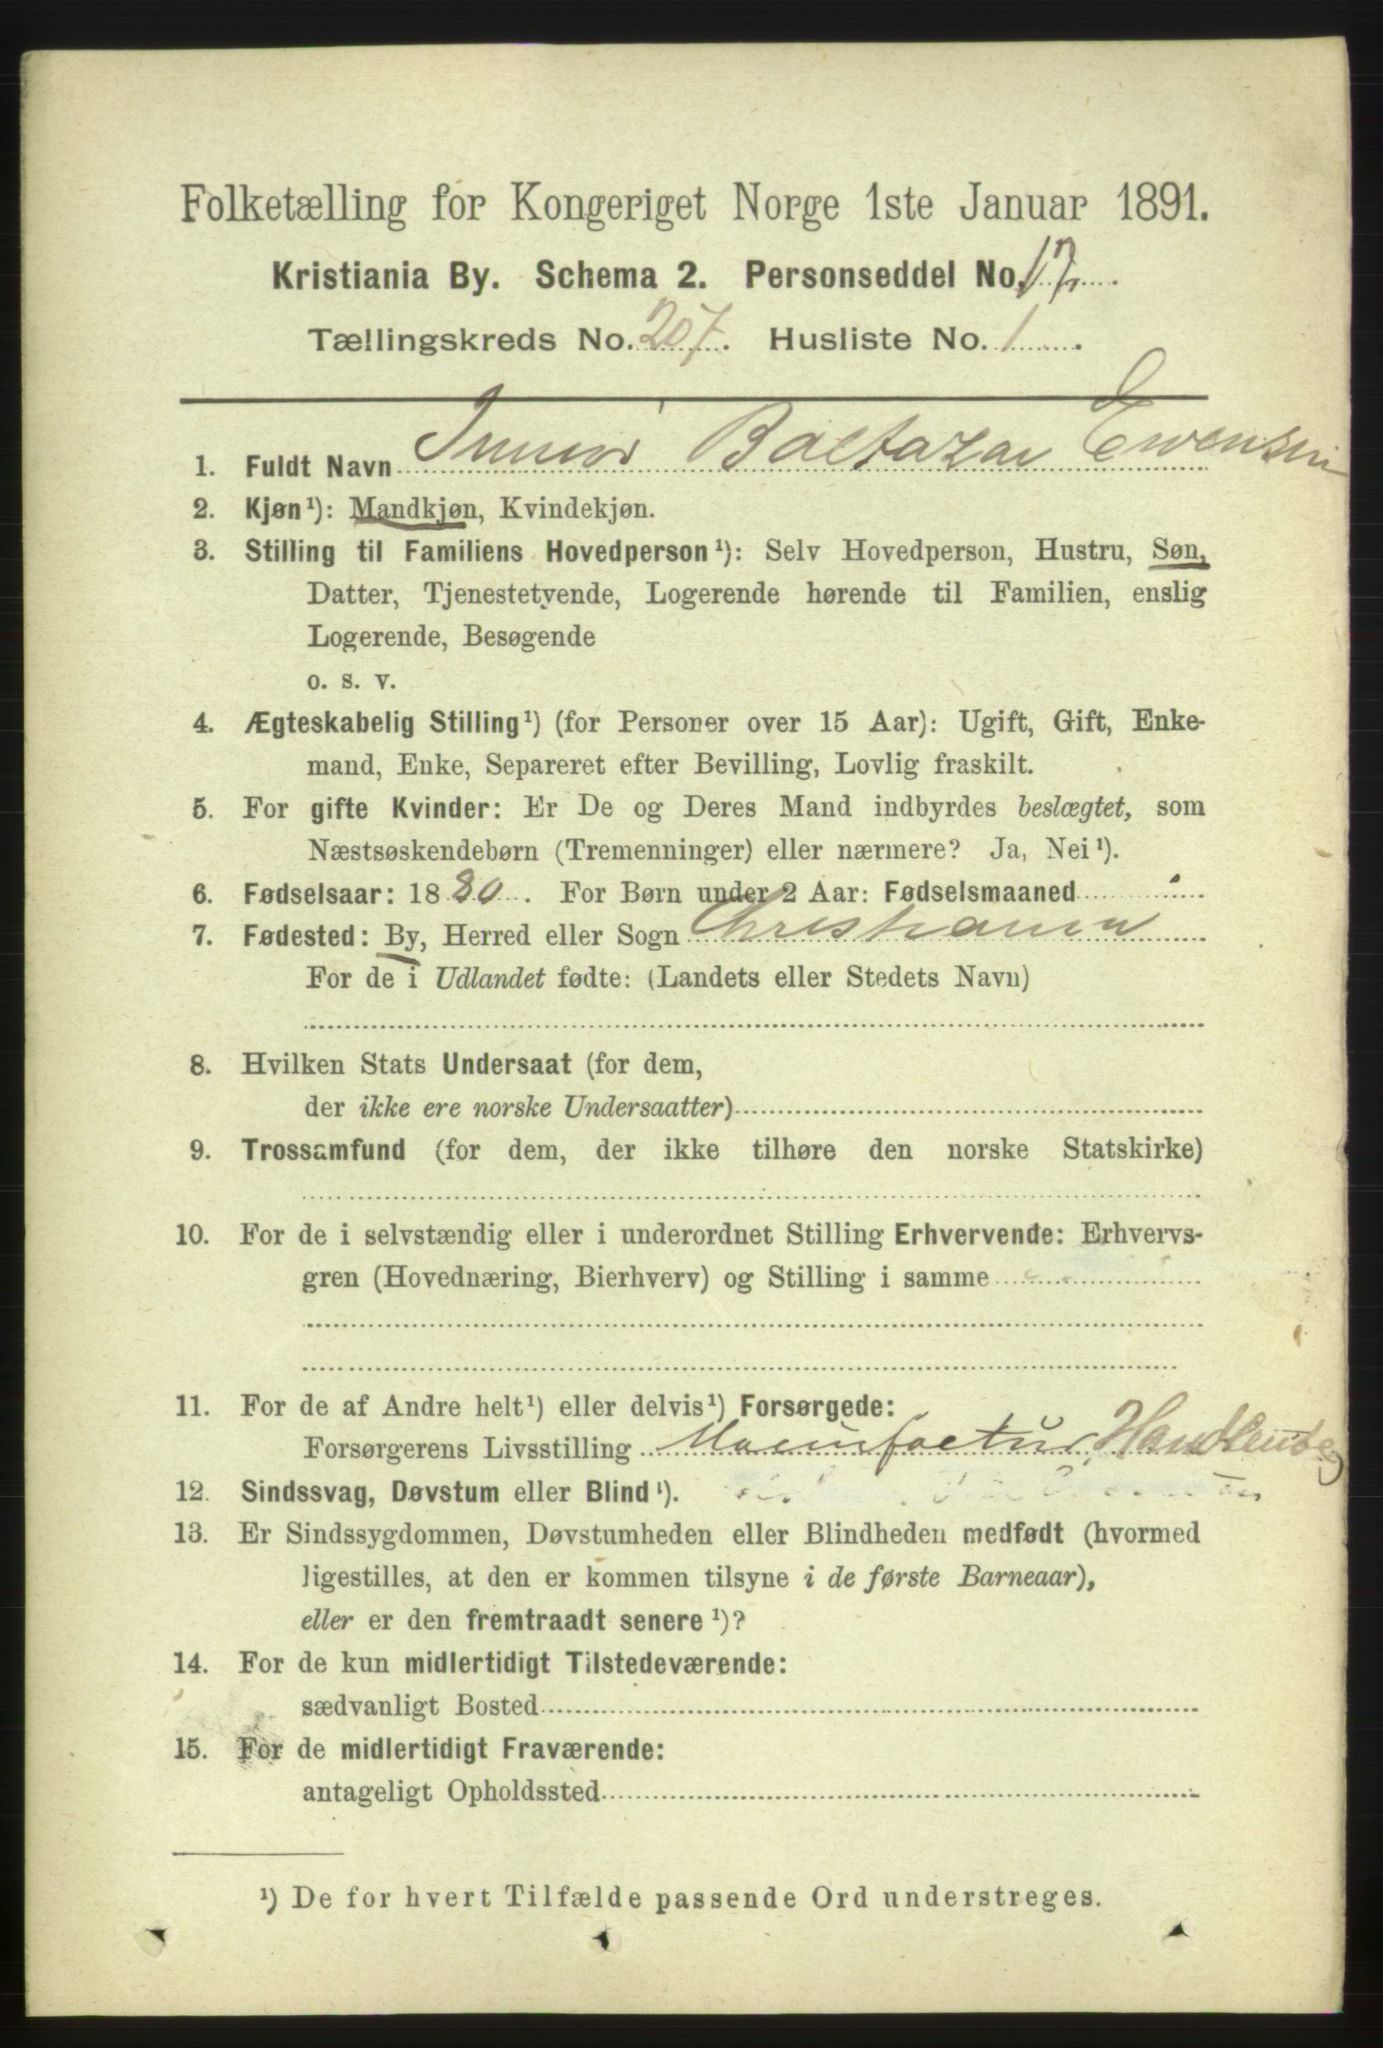 Folketælling for Kongeriget Norge 1ste Januar 1891.
Kristiania By. Schema 2. Personseddel No. 12
Tællingskreds No. 207. Husliste No. 1
1. Fuldt Navn Baltazar Ewensen
2. Kjøn¹): Mandkjøn, Kvindekjøn.
3. Stilling til Familiens Hovedperson¹): Selv Hovedperson, Hustru, Søn,
Datter, Tjenestetyende, Logerende hørende til Familien, enslig
Logerende, Besøgende
o. s. v.
4. Ægteskabelig Stilling¹) (for Personer over 15 Aar): Ugift, Gift, Enke-
mand, Enke, Separeret efter Bevilling, Lovlig fraskilt.
5. For gifte Kvinder: Er De og Deres Mand indbyrdes beslægtet, som
Næstsøskendebørn (Tremenninger) eller nærmere? Ja, Nei¹).
6. Fødselsaar: 1880. For Børn under 2 Aar: Fødselsmaaned
7. Fødested: By, Herred eller Sogn Christiania
For de i Udlandet fødte: (Landets eller Stedets Navn)
8. Hvilken Stats Undersaat (for dem,
der ikke ere norske Undersaatter)
9. Trossamfund (for dem, der ikke tilhøre den norske Statskirke)
10. For de i selvstændig eller i underordnet Stilling Erhvervende: Erhvervs-
gren (Hovednæring, Bierhverv) og Stilling i samme
11. For de af Andre helt¹) eller delvis¹) Forsørgede:
Forsørgerens Livsstilling Manufactur Handlende
12. Sindssvag, Døvstum eller Blind¹).
13. Er Sindssygdommen, Døvstumheden eller Blindheden medfødt (hvormed
ligestilles, at den er kommen tilsyne i de første Barneaar),
eller er den fremtraadt senere¹)?
14. For de kun midlertidigt Tilstedeværende:
sædvanligt Bosted
15. For de midlertidigt Fraværende:
antageligt Opholdssted
¹) De for hvert Tilfælde passende Ord understreges.